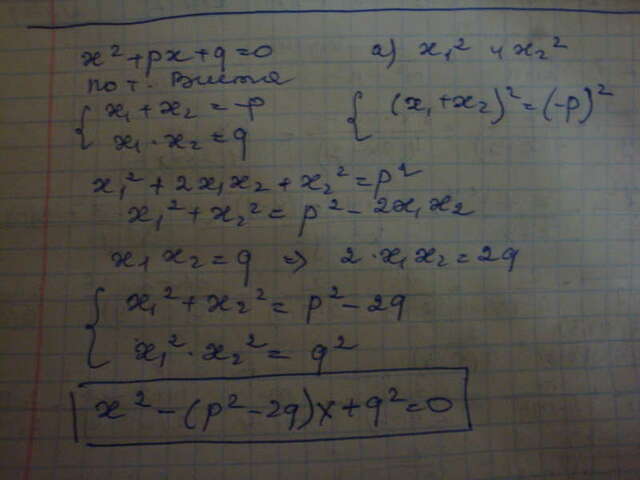 x² + px + q = 0
по т. Виета
{ x₁ + x₂ = -p
x₁ · x₂ = q
а) x₁² и x₂²
{ (x₁ + x₂)² = (-p)²
x₁² + 2x₁x₂ + x₂² = p²
x₁² + x₂² = p² - 2x₁x₂
x₁ x₂ = q ⇒ 2 · x₁x₂ = 2q
{ x₁² + x₂² = p² - 2q
x₁² · x₂² = q²
x² - (p² - 2q)x + q² = 0